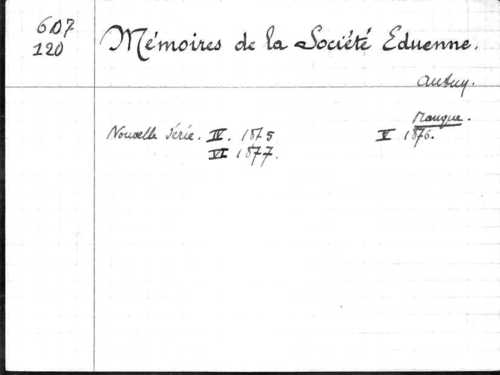 607
120
Mémoires de la Société Eduenne.
Autun.
Manque.
Nouvelle Série. IV. 1875
V 1876.
VI 1877.